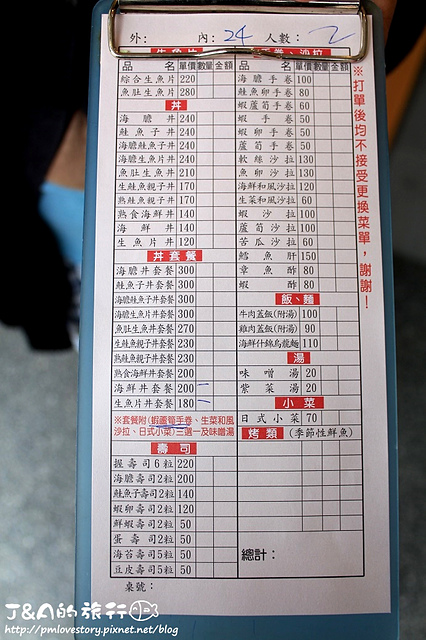 外: 內: 24 人數: 2
生魚片
品名 單價 數量 金額
綜合生魚片 220
魚肚生魚片 280
丼
海膽丼 240
鮭魚子丼 240
海膽鮭魚子丼 240
海膽生魚片丼 240
魚肚生魚丼 210
生鮭魚親子丼 170
熟鮭魚親子丼 170
熟食海鮮丼 140
海鮮丼 140
生魚片丼 120
丼套餐
海膽丼套餐 300
鮭魚子丼套餐 300
海膽鮭魚子丼套餐 300
海膽生魚片丼套餐 300
魚肚生魚丼套餐 270
生鮭魚親子丼套餐 230
熟鮭魚親子丼套餐 230
熟食海鮮丼套餐 200
海鮮丼套餐 200 一
生魚片丼套餐 180 一
※套餐附(蝦蘆筍手卷、生菜和風
沙拉、日式小菜)三選一及味噌湯
壽司
握壽司6粒 220
海膽壽司2粒 200
鮭魚子壽司2粒 140
蝦卵壽司2粒 120
鮮蝦壽司2粒 50
蛋壽司2粒 50
海苔壽司5粒 50
豆皮壽司5粒 50
桌號:
手卷、沙拉
品名 單價 數量 金額
海膽手卷 100
鮭魚卵手卷 80
蝦蘆筍手卷 60
蝦手卷 50
蝦卵手卷 50
蘆筍手卷 50
軟絲沙拉 130
魚卵沙拉 130
海鮮和風沙拉 120
生菜和風沙拉 60
蝦沙拉 100
蘆筍沙拉 100
苦瓜沙拉 60
鱈魚肝 150
章魚酢 80
蝦酢 80
飯、麵
牛肉蓋飯(附湯) 100
雞肉蓋飯(附湯) 90
海鮮什錦烏龍麵 110
湯
味噌湯 20
紫菜湯 20
小菜
日式小菜 70
烤類 (季節性鮮魚)
總計:
※打單後均不接受更換菜單,謝謝!
J&A的旅行
http://pmlovestory.pixnet.net/blog